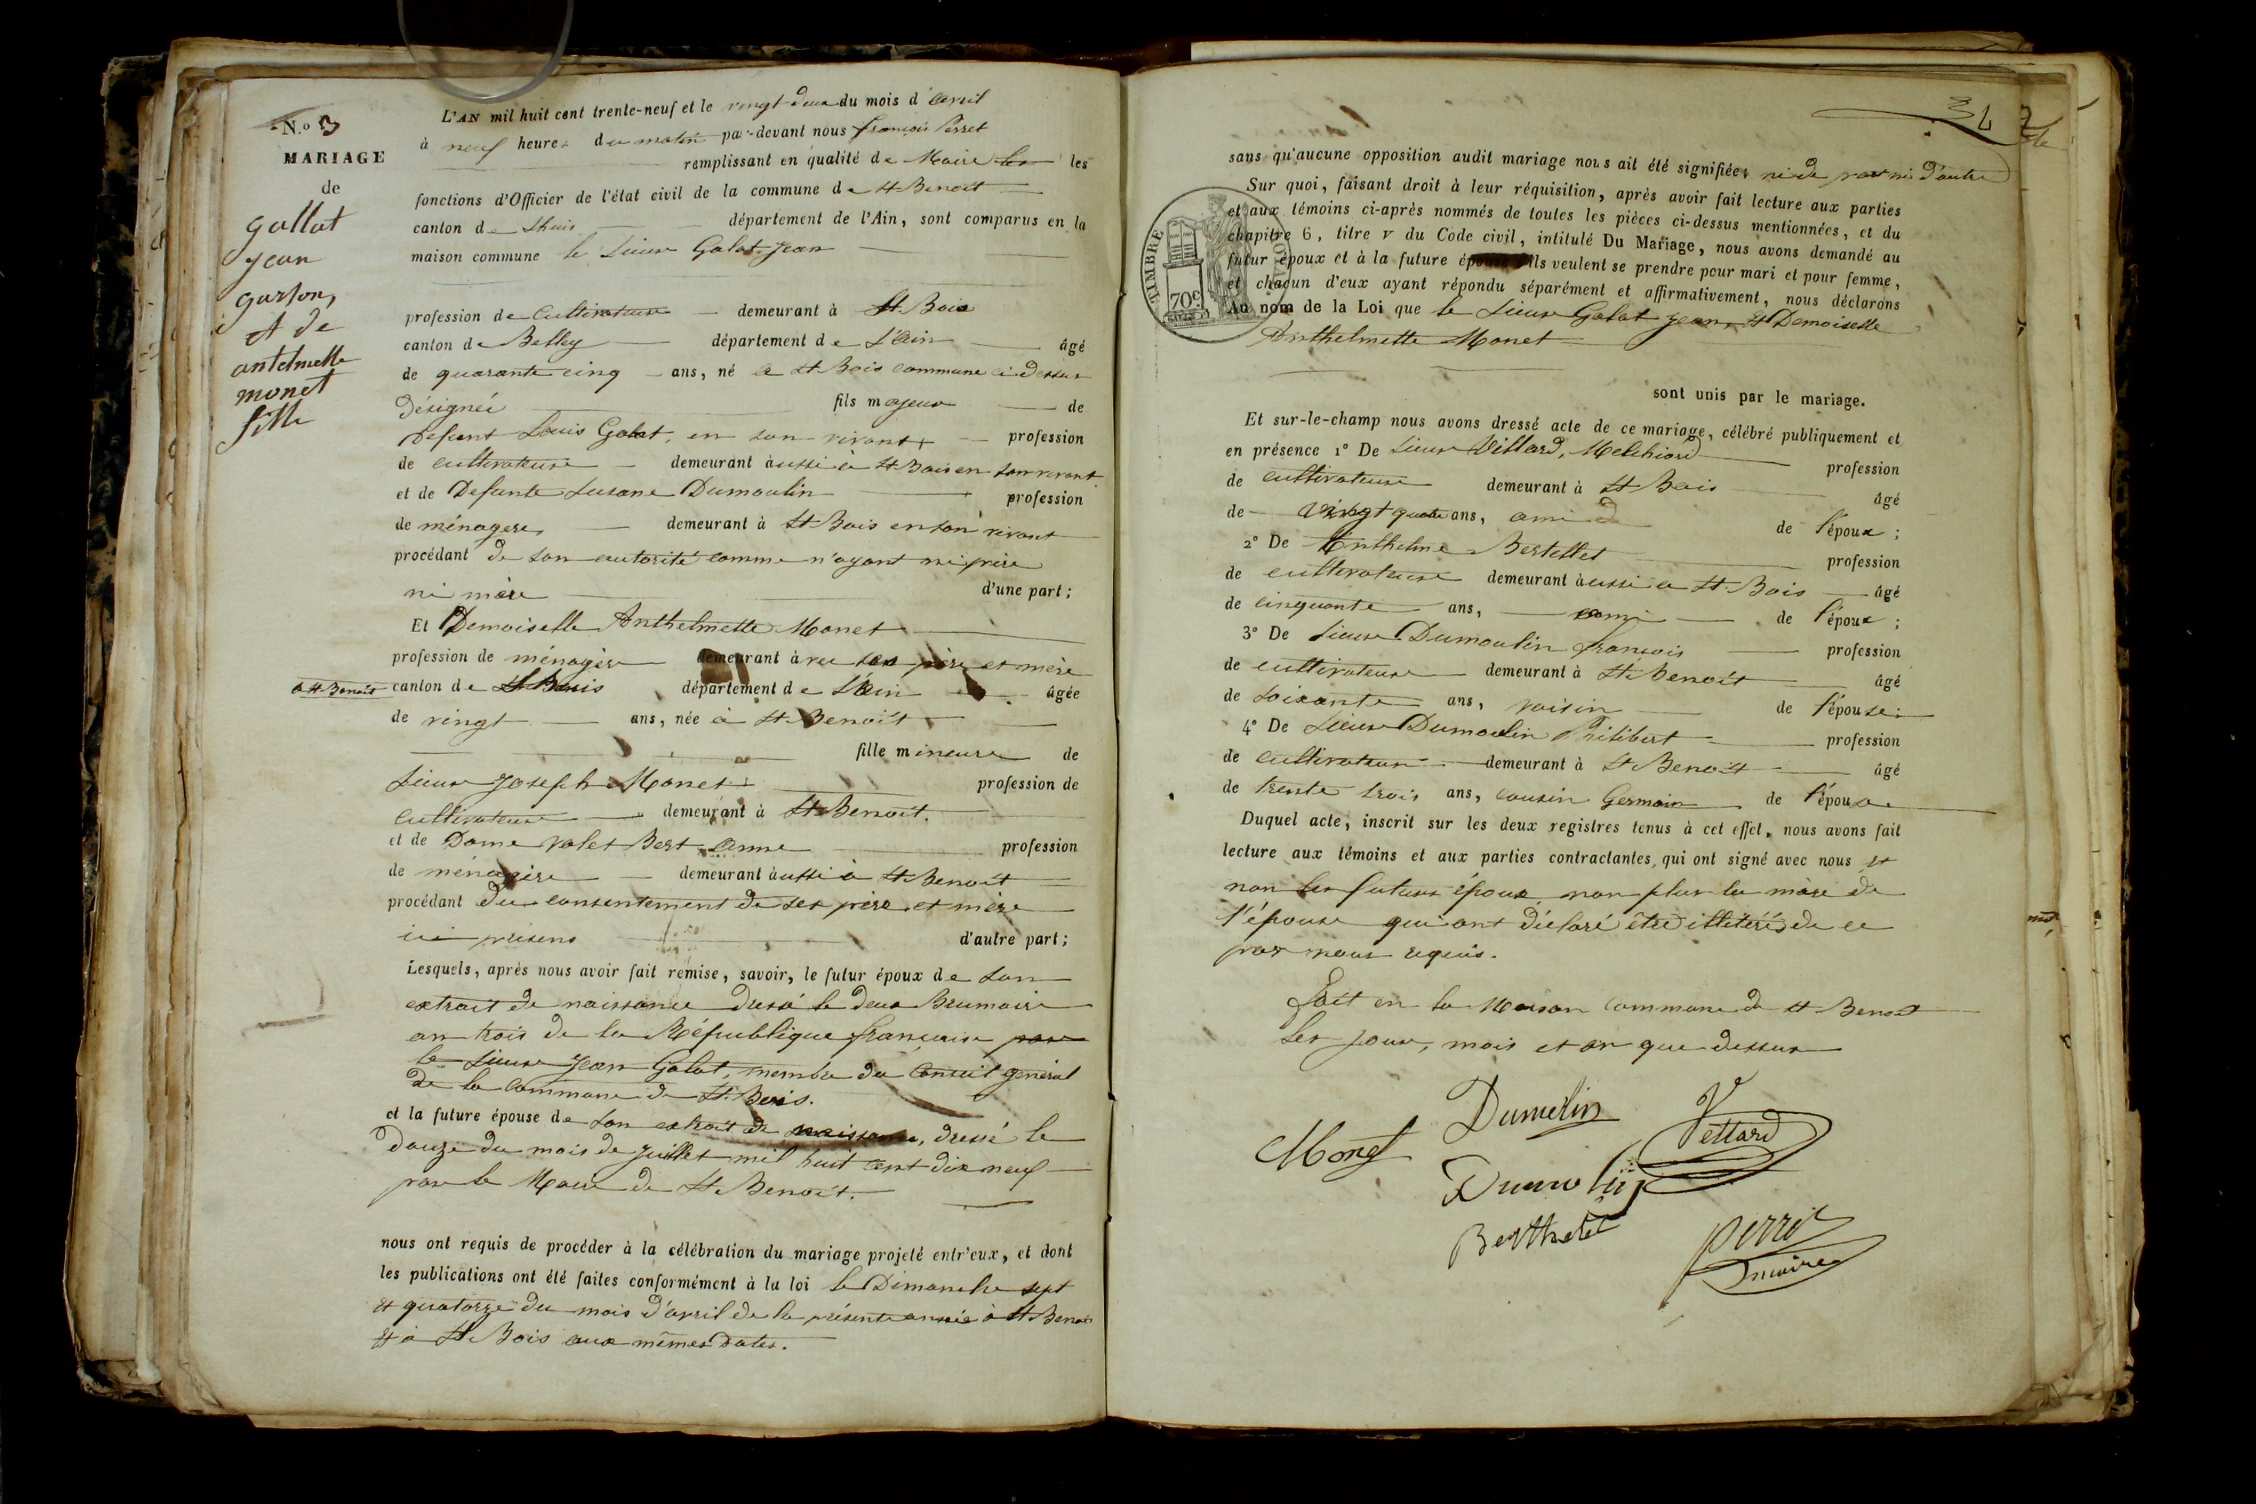 N.o 3
MARIAGE
de
gallat
jean
garson,
et de
antelmette
monet
fille
L'AN mil huit cent trente-neuf et le vingt-deux du mois d'avril
à neuf heures du matin par-devant nous françois Perret
remplissant en qualité de Maire les
fonctions d'Officier de l'état civil de la commune de St Benoit
canton de Lhuis département de l'Ain, sont comparus en la
maison commune le Sieur Galat Jean
profession de Cultivateur demeurant à St Bois
canton de Belley département de L'ain âgé
de quarante cinq ans, né à St Bois commune ci dessus
désignée fils majeur de
defunt Louis Galat, en son vivant, profession
de cultivateur demeurant aussi à St Bois en son vivant
et de Defunte Susane Dumoulin profession
de ménagere, demeurant à St Bois en son vivant
procédant de son autorité comme n'ayant ni père
ni mère d'une part;
Et Demoiselle Anthelmette Monet
profession de ménagère demeurant avec ses père et mère
à St Benoit canton de département de L'ain âgée
de vingt ans, née à St Benoit
fille mineure de
Sieur Joseph Monet profession de
Cultivateur demeurant à St Benoit.
et de Dame Valet Bert anne profession
de ménagère demeurant aussi à St Benoit
procédant du consentement de ses père et mère
ici présens d'autre part;
Lesquels, après nous avoir fait remise, savoir, le futur époux de son
extrait de naissance dressé le deux Brumaire
an trois de la République française par
le Sieur Jean Galat, membre du Conseil général
de la Commune de St Bois.
et la future épouse de son extrait de naissance, dressé le
Douze du mois de Juillet mil huit cent dix neuf
par le Maire de St Benoit.
nous ont requis de procéder à la célébration du mariage projeté entr'eux, et dont
les publications ont été faites conformément à la loi le Dimanche sept
et quatorze du mois d'avril de la présente année à St Benoit
et à St Bois aux mêmes dates.
sans qu'aucune opposition audit mariage nous ait été signifiée, ni de part ni d'autre
Sur quoi, faisant droit à leur réquisition, après avoir fait lecture aux parties
et aux témoins ci-après nommés de toutes les pièces ci-dessus mentionnées, et du
chapitre 6, titre v du Code civil, intitulé Du Mariage, nous avons demandé au
futur époux et à la future épouse s'ils veulent se prendre pour mari et pour femme,
et chacun d'eux ayant répondu séparément et affirmativement, nous déclarons
Au nom de la Loi que le Sieur Galat jean, et Demoiselle
Anthelmette Monet
TIMBRE ROYAL
70c
sont unis par le mariage.
Et sur-le-champ nous avons dressé acte de ce mariage, célébré publiquement et
en présence 1o De Sieur Villard, Melchiord profession
de cultivateur demeurant à St Bois âgé
de vingt quatre ans, ami de l'époux;
2o De Anthelme Bertellet profession
de cultivateur demeurant aussi à St Bois âgé
de cinquante ans, ami de l'époux;
3o De Sieur Dumoulin françois profession
de cultivateur demeurant à St Benoit âgé
de soixante ans, voisin de l'épouse;
4o De Sieur Dumoulin Philibert profession
de cultivateur demeurant à St Benoit âgé
de trente trois ans, cousin Germain de l'époux
Duquel acte, inscrit sur les deux registres tenus à cet effet, nous avons fait
lecture aux témoins et aux parties contractantes, qui ont signé avec nous et
non les futurs époux non plus la mère de
l'épouse qui ont déclaré être illitérés de ce
par nous requis.
Fait en la Maison Commune de St Benoit
les jour, mois et an que dessus
Dumolin
Vettard
Monet
Dumolin
Berthelet
perret
maire